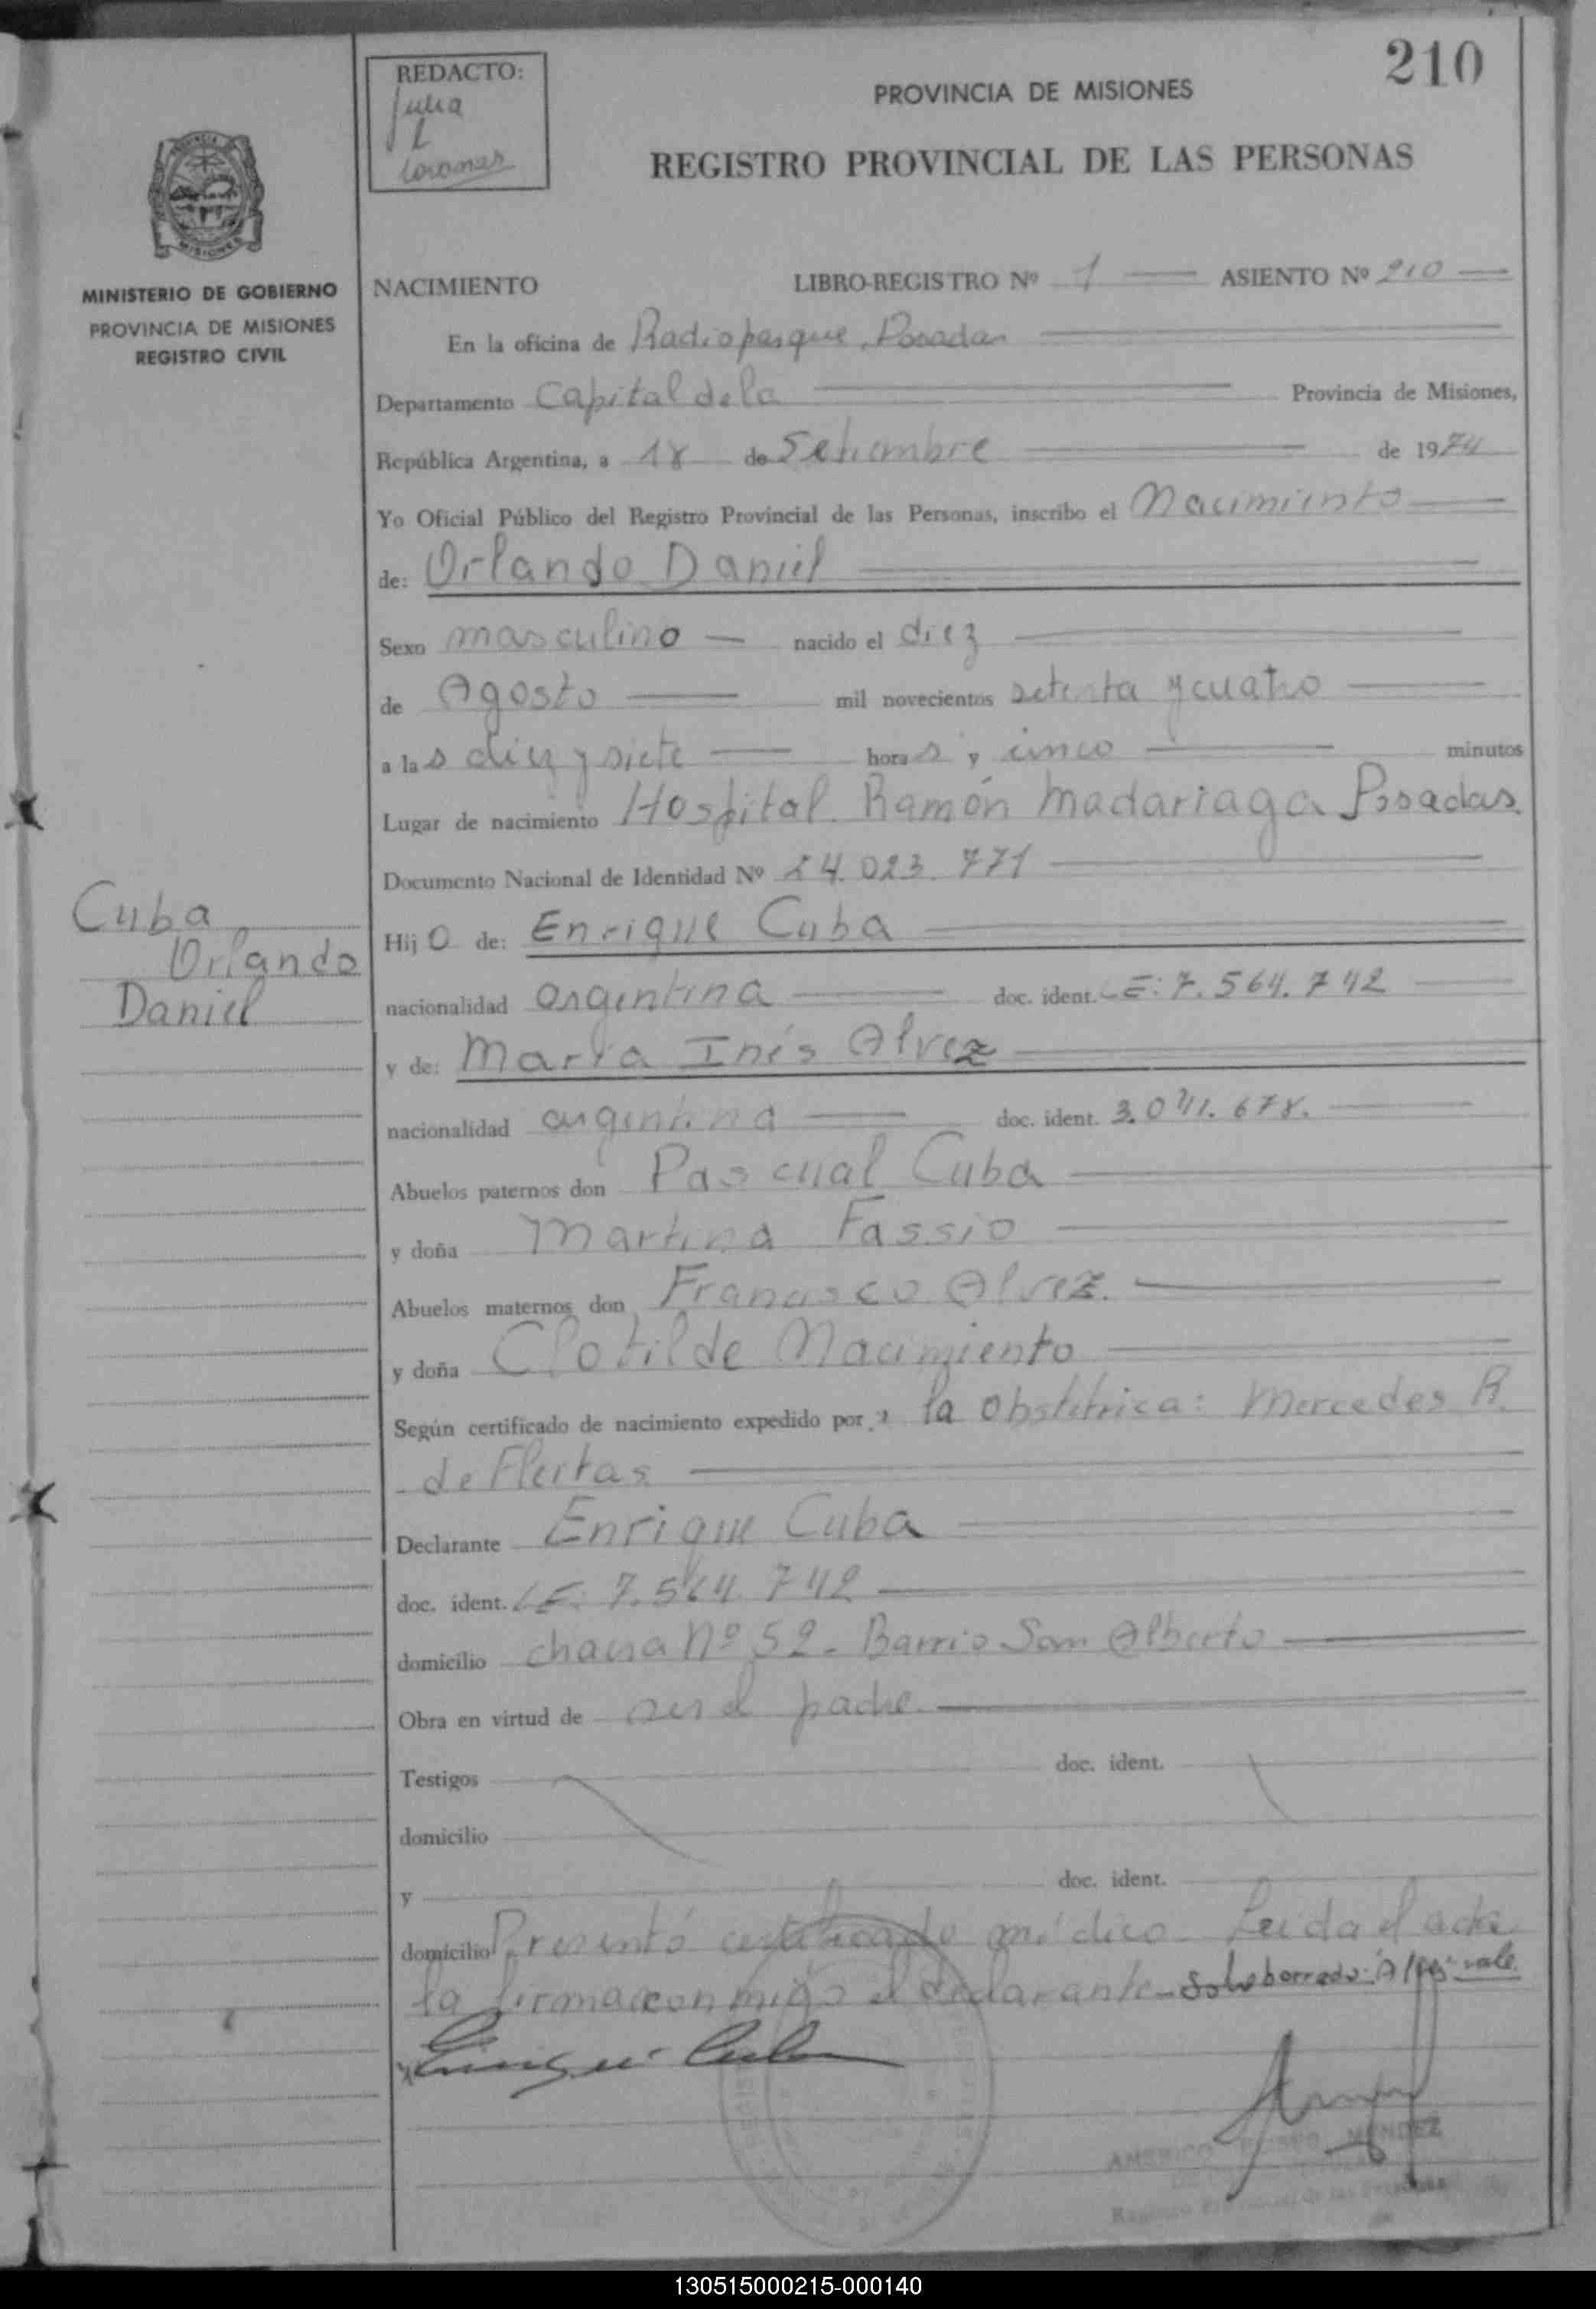 210
REDACTO:
Julia
L
Coromar
PROVINCIA DE MISIONES
REGISTRO PROVINCIAL DE LAS PERSONAS
MISIONES
MINISTERIO DE GOBIERNO
PROVINCIA DE MISIONES
REGISTRO CIVIL
NACIMIENTO LIBRO-REGISTRO Nº 1 ASIENTO Nº 210
En la oficina de Radioparque, Posadas
Departamento Capital de la Provincia de Misiones,
República Argentina, a 18 de Setiembre de 1974
Yo Oficial Público del Registro Provincial de las Personas, inscribo el Nacimiento
de: Orlando Daniel
Sexo masculino nacido el diez
de Agosto mil novecientos setenta y cuatro
a las diez y siete horas y cinco minutos
Lugar de nacimiento Hospital Ramón Madariaga Posadas.
Documento Nacional de Identidad Nº 24.023.771
Cuba
Orlando
Daniel
Hijo de: Enrique Cuba
nacionalidad argentina doc. ident. L E: 7.564.742
y de: María Inés Alvez
nacionalidad argentina doc. ident. 3.041.678.
Abuelos paternos don Pascual Cuba
y doña Martina Fassio
Abuelos maternos don Francisco Alvez.
y doña Clotilde Nacimiento
Según certificado de nacimiento expedido por la Obstétrica: Mercedes R.
de
Declarante Enrique Cuba
doc. ident. L E: 7.564.742
domicilio chacra Nº 52 - Barrio San Alberto
Obra en virtud de ser el padre.
Testigos doc. ident.
domicilio
y doc. ident.
domicilio Presentó certificado médico. Leida el acta
la firma con migo el declarante - Sobreborrado: vale.
Enrique Cuba
AMERICO MENDEZ
130515000215-000140